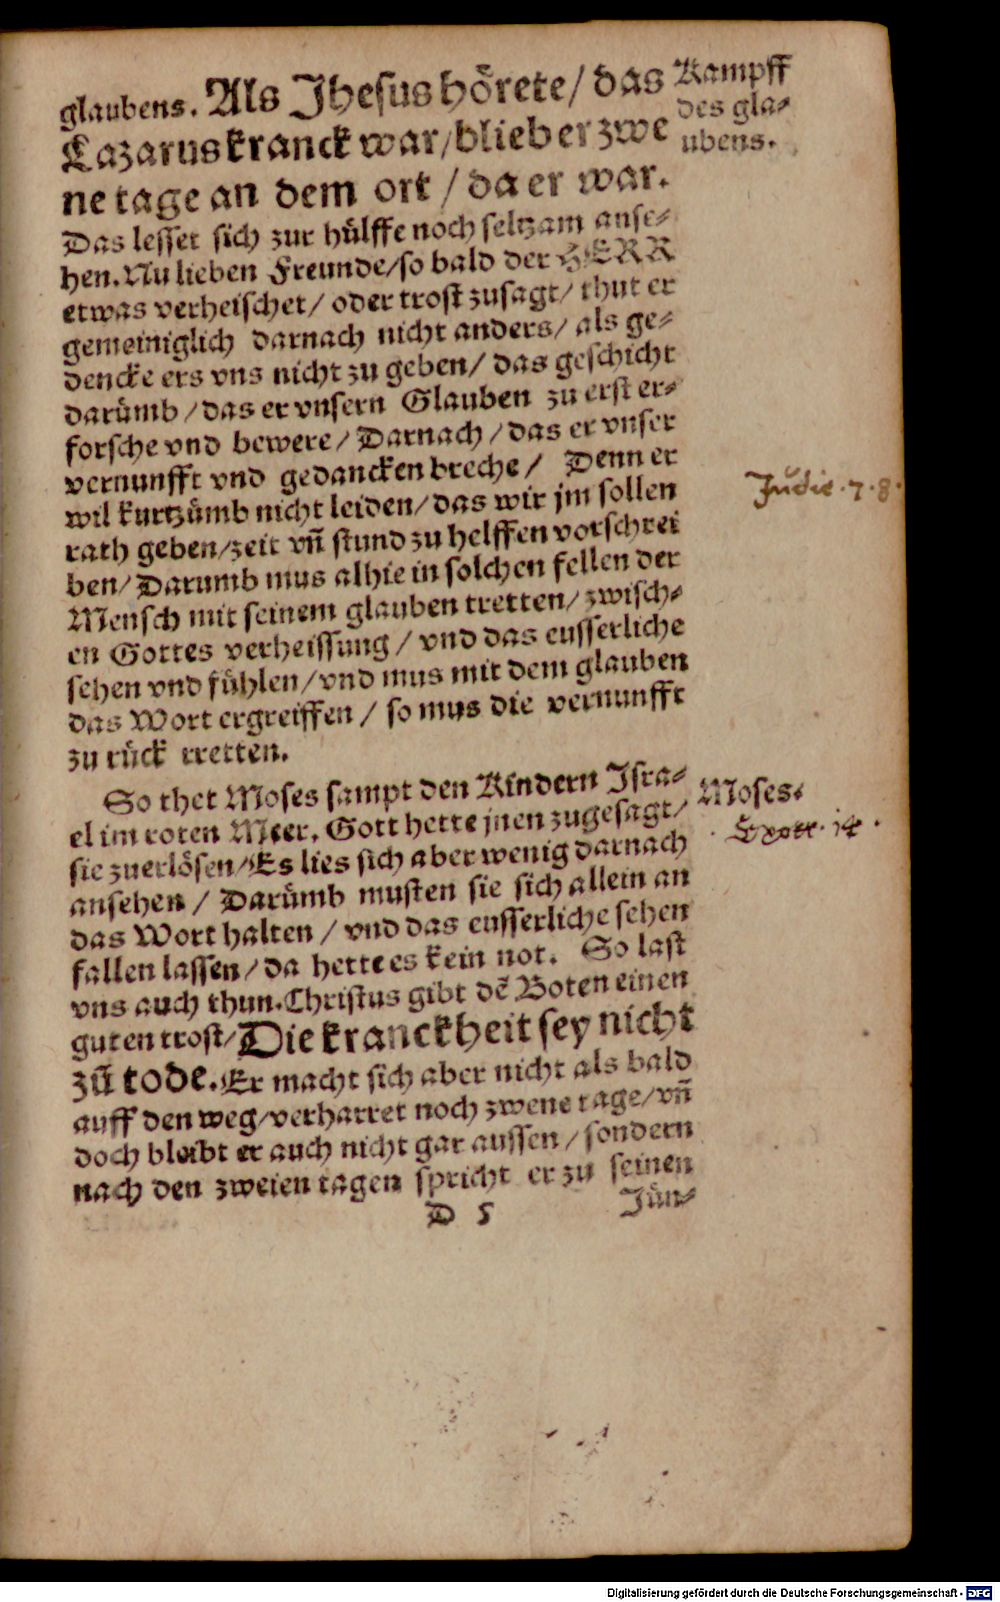 glaubens. Als Jhesus hörete/ das
Lazarus kranck war/ blieb er zwe
ne tage an dem ort / da er war.
Das lesset sich zur hülffe noch seltzam anse⸗
hen. Nu lieben Freunde/ so bald der HERR
etwas verheischet/ oder trost zusagt/ thut er
gemeiniglich darnach nicht anders/ als ge⸗
dencke ers vns nicht zu geben/ das geschicht
darümb / das er vnsern Glauben zu erst er⸗
forsche vnd bewere/ Darnach / das er vnser
vernunfft vnd gedancken breche / Denn er
wil kurtzümb nicht leiden/ das wir jm sollen
rath geben/ zeit vñ stund zu helffen vorschrei
ben/ Darumb mus alhie in solchen fellen der
Mensch mit seinem glauben tretten/ zwisch⸗
en Gottes verheissung / vnd das eusserliche
sehen vnd fühlen/ vnd mus mit dem glauben
das Wort ergreiffen / so mus die vernunfft
zu rück tretten.
So thet Moses sampt den Kindern Isra⸗
el im roten Meer. Gott hette jnen zugesagt/
sie zuerlösen/ Es lies sich aber wenig darnach
ansehen / Darümb musten sie sich allein an
das Wort halten / vnd das eusserliche sehen
fallen lassen/ da hette es kein not. So last
vns auch thun. Christus gibt dẽ Boten einen
guten trost/ Die kranckheit sey nicht
zũ tode. Er macht sich aber nicht als bald
auff den weg/ verharret noch zwene tage/ vñ
doch bleibt er auch nicht gar aussen / sondern
nach den zweien tagen spricht er zu seinen
D 5 Jün⸗
Kampff
des gla⸗
ubens.
Judic. 7. 8.
Moses.
Exod. 14.
Digitalisierung gefördert durch die Deutsche Forschungsgemeinschaft - DFG